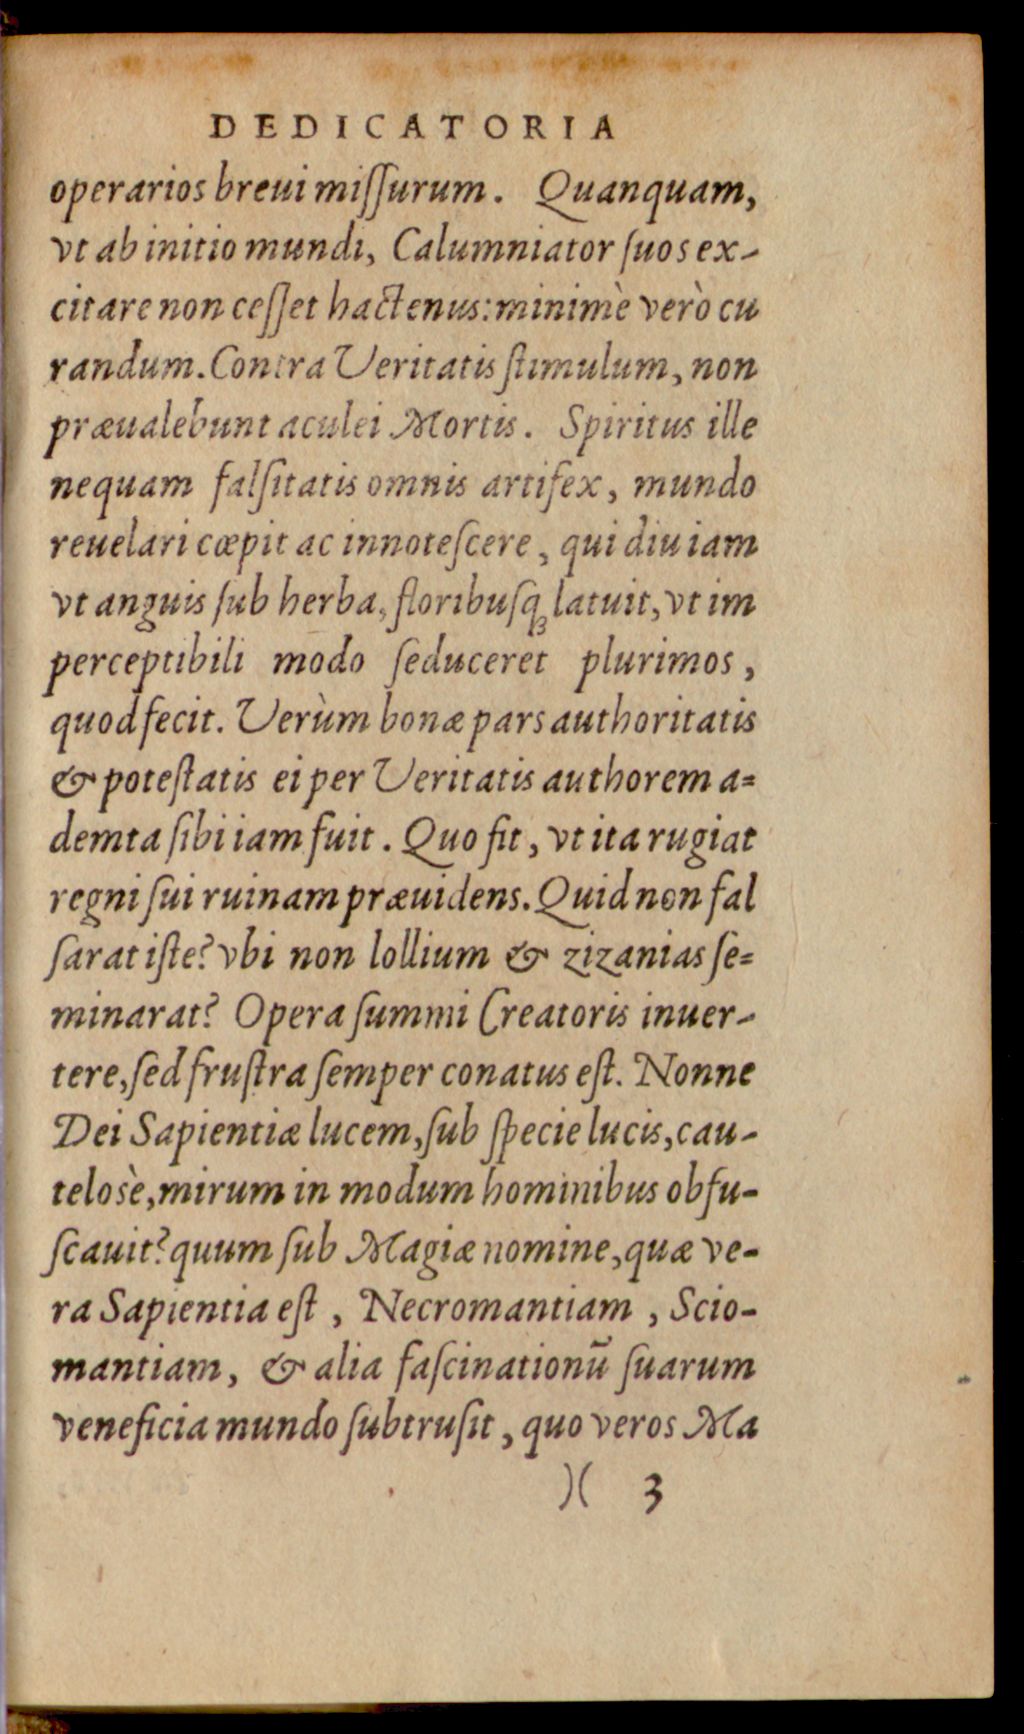 DEDICATORIA
operarios breui miſſurum. Quanquam,
vt ab initio mundi, Calumniator ſuos ex-
citare non ceſſet hactenus: minimè verò cu
randum. Contra Veritatis ſtimulum, non
præualebunt aculei Mortis. Spiritus ille
nequam falſitatis omnis artifex, mundo
reuelari cœpit ac innoteſcere, qui diu iam
vt anguis ſub herba, floribuſq; latuit, vt im
perceptibili modo ſeduceret plurimos,
quod fecit. Verùm bonæ pars authoritatis
& poteſtatis ei per Veritatis authorem a=
demta ſibi iam fuit. Quo fit, vt ita rugiat
regni ſui ruinam præuidens. Quid non fal
ſarat iſte? vbi non lollium & zizanias ſe=
minarat? Opera ſummi Creatoris inuer-
tere, ſed fruſtra ſemper conatus eſt. Nonne
Dei Sapientiæ lucem, ſub ſpecie lucis, cau-
telosè, mirum in modum hominibus obfu-
ſcauit? quum ſub Magiæ nomine, quæ ve-
ra Sapientia eſt, Necromantiam, Scio-
mantiam, & alia faſcinationũ ſuarum
veneficia mundo ſubtruſit, quo veros Ma
)( 3